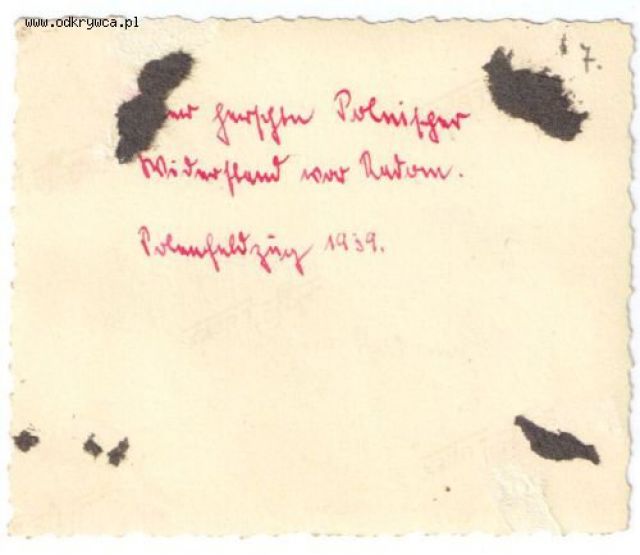 www.odkrywca.pl
7.
herschte Polnischer
Widerstand vor Radom.
Polenfeldzug 1939.